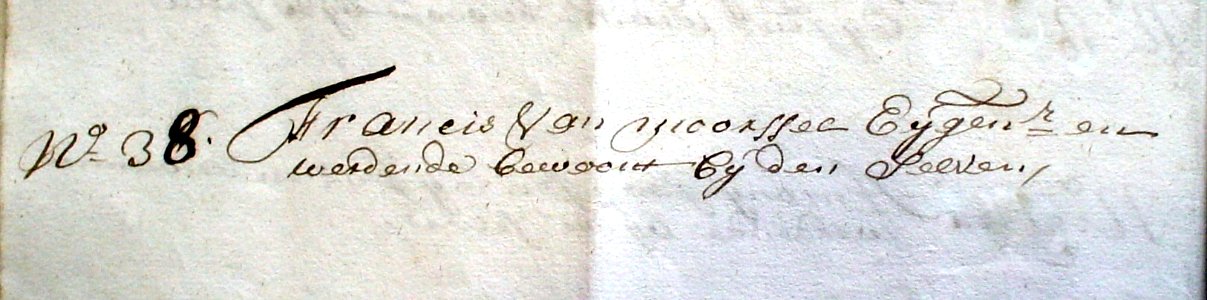 No. 38. Francis Van moorssel Eygenr. en
werdende bewoont by den Selven,